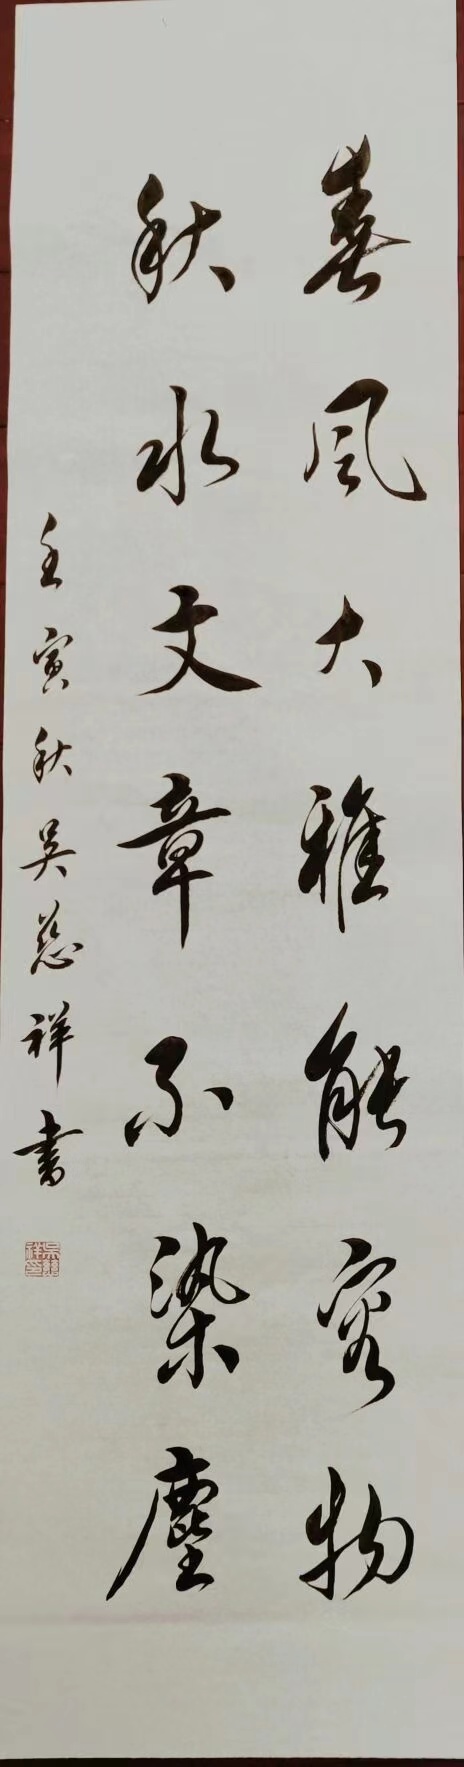 春風大雅能容物
秋水文章不染塵
壬寅秋吴慈祥書
吴慈祥印